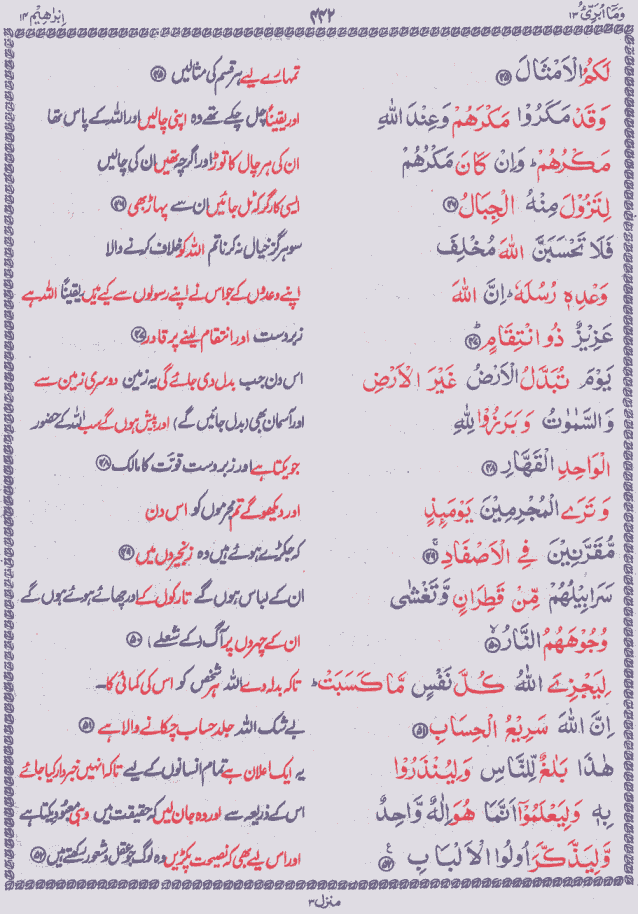 وَمَا أُبَرِّئُ ۱۳ ۳۳۲ اِبْرٰهِيْم ۱۴
لَكُمُ الْاَمْثَالَ ﴿۴۵﴾ تمہارے لیے ہر قسم کی مثالیں ﴿۴۵﴾
وَقَدْ مَكَرُوْا مَكْرَهُمْ وَعِنْدَ اللّٰهِ اور یقیناً چل چکے تھے وہ اپنی چالیں اور اللہ کے پاس تھا
مَكْرُهُمْ ؕ وَاِنْ كَانَ مَكْرُهُمْ ان کی ہر چال کا توڑ اور اگرچہ تھیں ان کی چالیں
لِتَزُوْلَ مِنْهُ الْجِبَالُ ﴿۴۶﴾ ایسی کارگر کہ ٹل جائیں ان سے پہاڑ بھی ﴿۴۶﴾
فَلَا تَحْسَبَنَّ اللّٰهَ مُخْلِفَ سو ہرگز خیال نہ کرنا تم اللہ کو خلاف کرنے والا
وَعْدِهٖ رُسُلَهٗ ؕ اِنَّ اللّٰهَ اپنے وعدوں کے جو اس نے اپنے رسولوں سے کیے ہیں یقیناً اللہ ہے
عَزِيْزٌ ذُو انْتِقَامٍ ؕ ﴿۴۷﴾ زبردست اور انتقام لینے پر قادر ﴿۴۷﴾
يَوْمَ تُبَدَّلُ الْاَرْضُ غَيْرَ الْاَرْضِ اس دن جب بدل دی جائے گی یہ زمین دوسری زمین سے
وَالسَّمٰوٰتُ وَبَرَزُوْا لِلّٰهِ اور آسمان بھی (بدل جائیں گے) اور پیش ہوں گے سب اللہ کے حضور
الْوَاحِدِ الْقَهَّارِ ﴿۴۸﴾ جو یکتا ہے اور زبردست قوّت کا مالک ﴿۴۸﴾
وَتَرَى الْمُجْرِمِيْنَ يَوْمَىِٕذٍ اور دیکھو گے تم مجرموں کو اس دن
مُّقَرَّنِيْنَ فِي الْاَصْفَادِ ۚ ﴿۴۹﴾ کہ جکڑے ہوئے ہیں وہ زنجیروں میں ﴿۴۹﴾
سَرَابِيْلُهُمْ مِّنْ قَطِرَانٍ وَّتَغْشٰى ان کے لباس ہوں گے تارکول کے اور چھائے ہوئے ہوں گے
وُجُوْهَهُمُ النَّارُ ۙ ﴿۵۰﴾ ان کے چہروں پر آگ (کے شعلے) ﴿۵۰﴾
لِيَجْزِيَ اللّٰهُ كُلَّ نَفْسٍ مَّا كَسَبَتْ ؕ تاکہ بدلہ دے اللہ ہر شخص کو اس کی کمائی کا۔
اِنَّ اللّٰهَ سَرِيْعُ الْحِسَابِ ﴿۵۱﴾ بے شک اللہ جلد حساب چکانے والا ہے ﴿۵۱﴾
هٰذَا بَلٰغٌ لِّلنَّاسِ وَلِيُنْذَرُوْا یہ ایک اعلان ہے تمام انسانوں کے لیے تاکہ انہیں خبردار کیا جائے
بِهٖ وَلِيَعْلَمُوْٓا اَنَّمَا هُوَ اِلٰهٌ وَّاحِدٌ اس کے ذریعہ سے اور وہ جان لیں کہ حقیقت میں وہی معبودِ یکتا ہے
وَّلِيَذَّكَّرَ اُولُوا الْاَلْبَابِ ۧ ﴿۵۲﴾ اور اس لیے بھی کہ نصیحت پکڑیں وہ لوگ جو عقل و شعور رکھتے ہیں ﴿۵۲﴾
منزل ۳